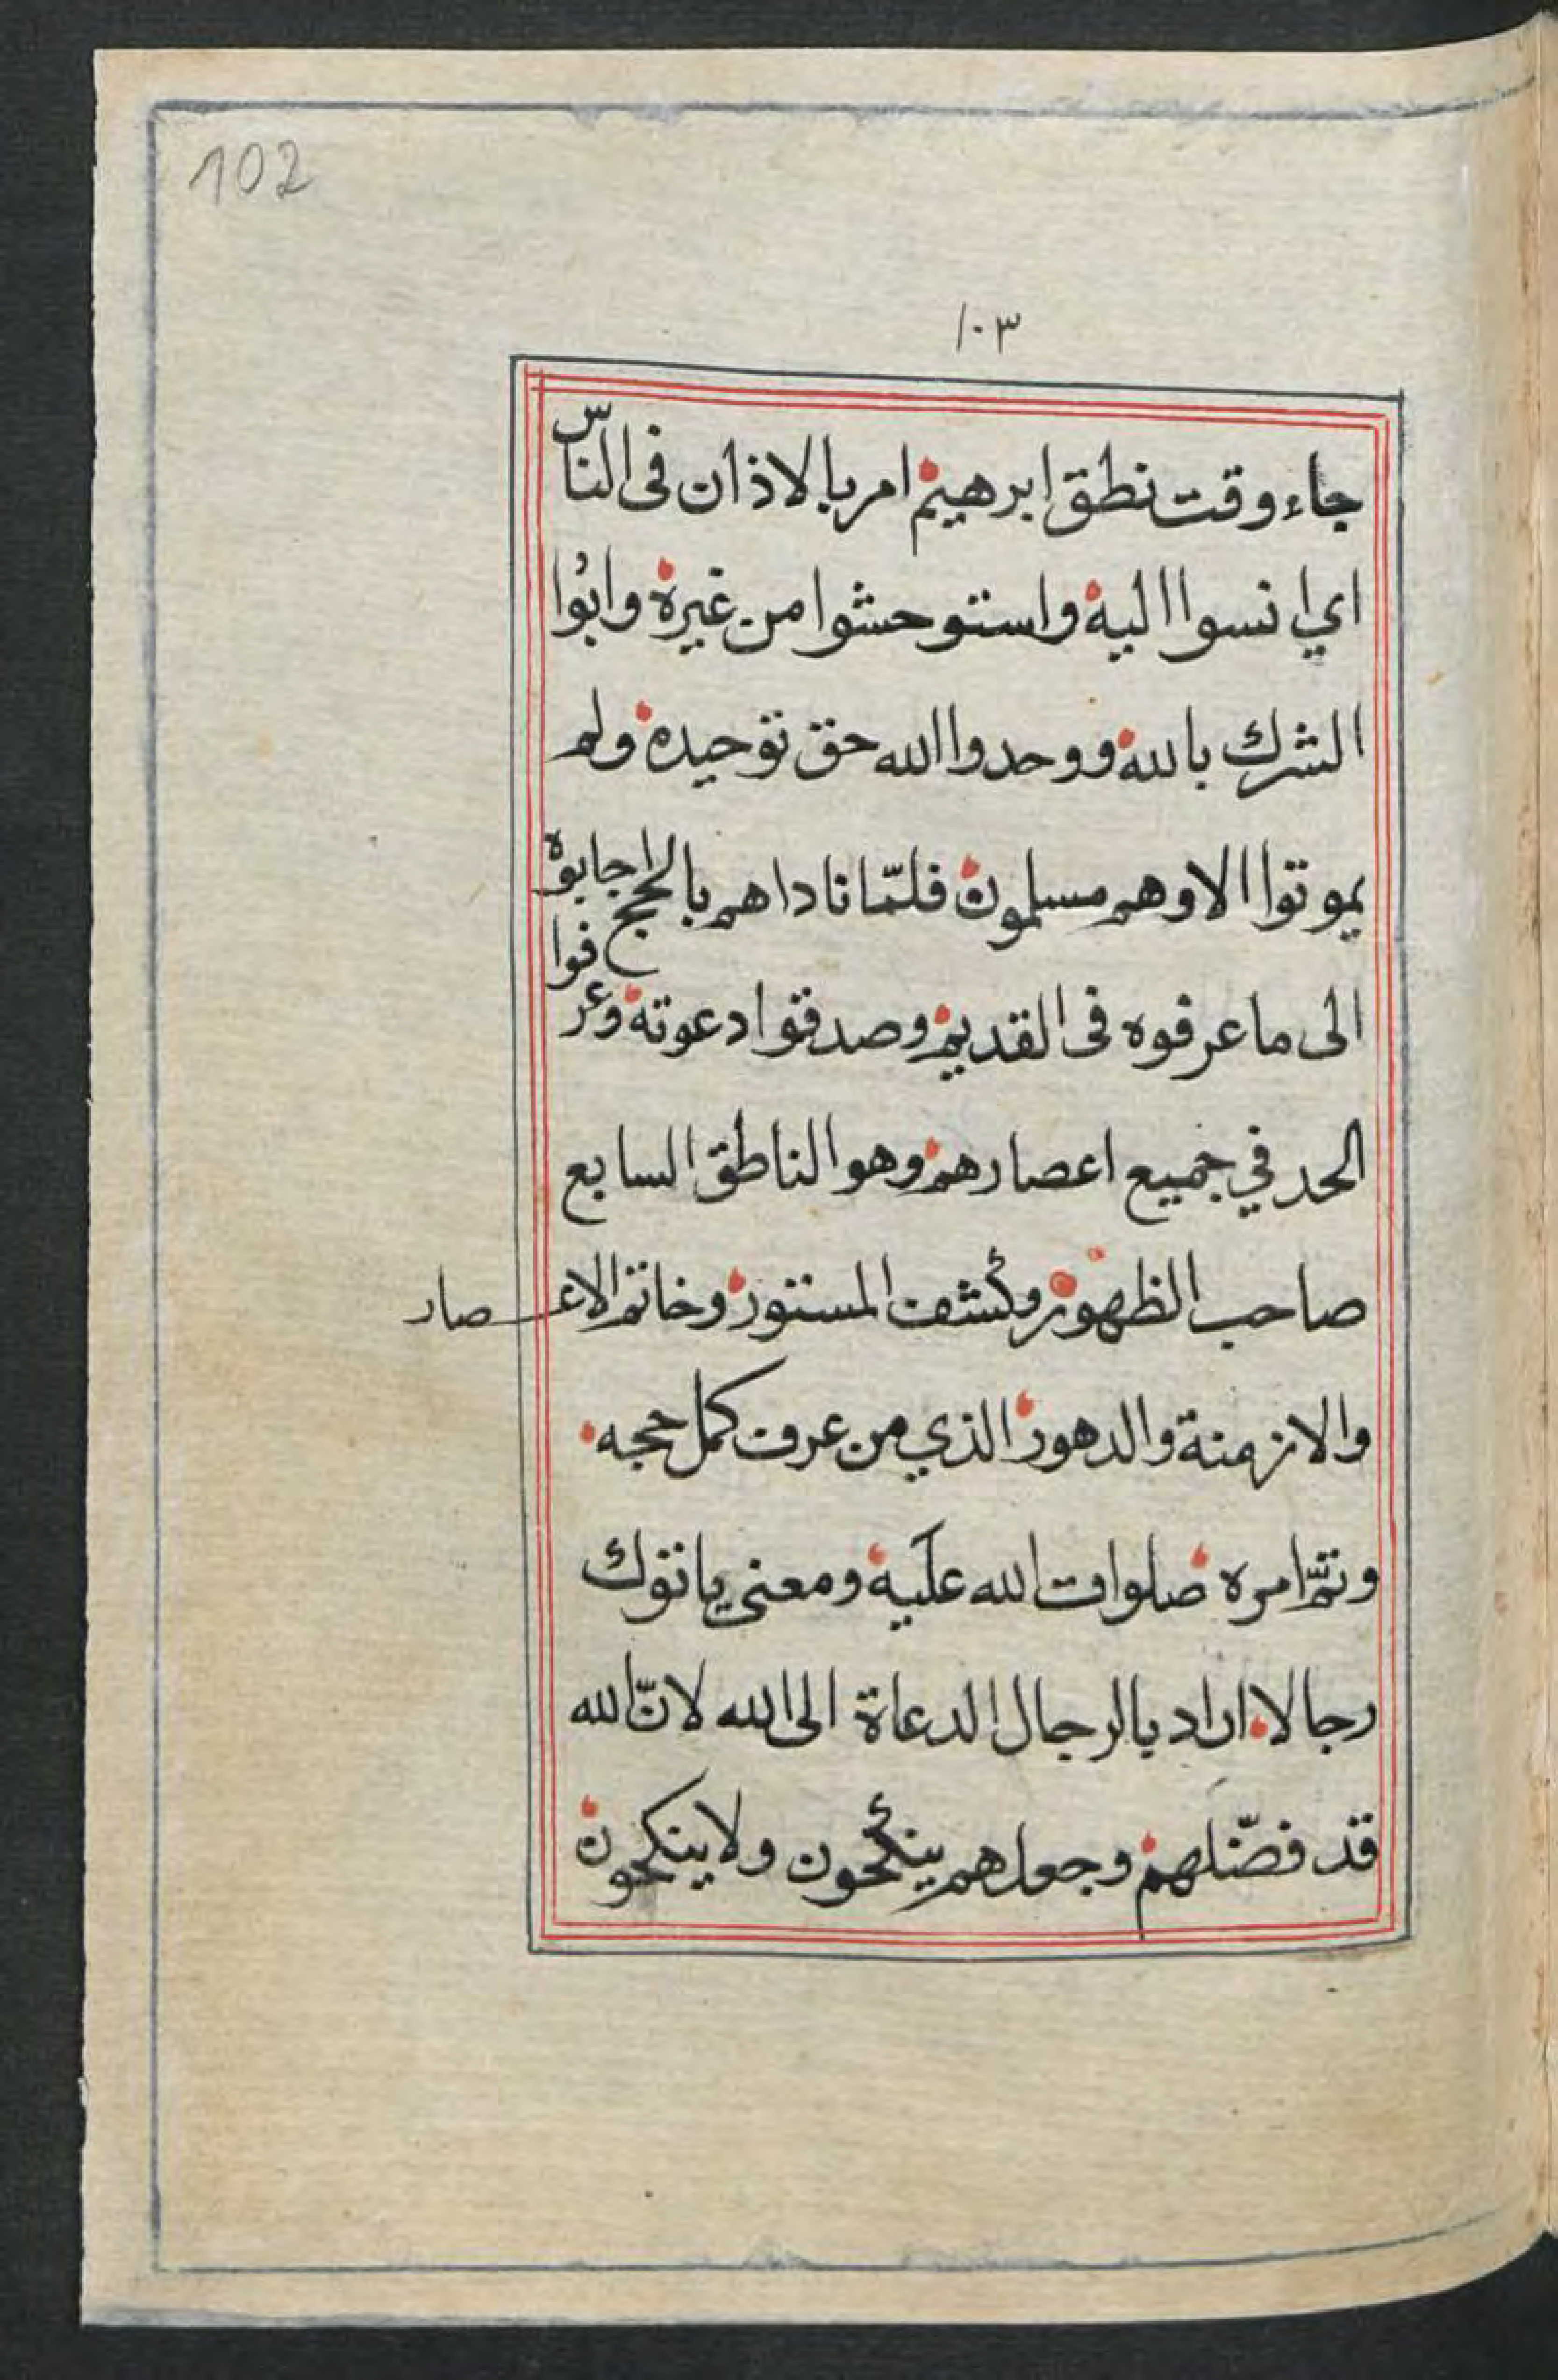 102
١٠٣
جاء وقت نطق ابرهيم امر بالاذان فى الناس
اي انسوا اليه واستوحشوا من غيره وابوُا
الشرك بالله ووحدوا الله حق توحيده ولم
يموتوا الا وهم مسلمون فلمّا ناداهم بالحج اجابوه
الى ما عرفوه فى القديم وصدقوا دعوته وعرفوا
الحد في جميع اعصارهم وهو الناطق السابع
صاحب الظهور وكشف المستور وخاتم الاعصار
والازمنة والدهور الذي من عرف كمل حجه
وتمّ امره صلوات الله عليه ومعنى ياتوك
رجالا اراد بالرجال الدعاة الى الله لانّ الله
قد فضّلهم وجعلهم ينكحون ولا ينكحون